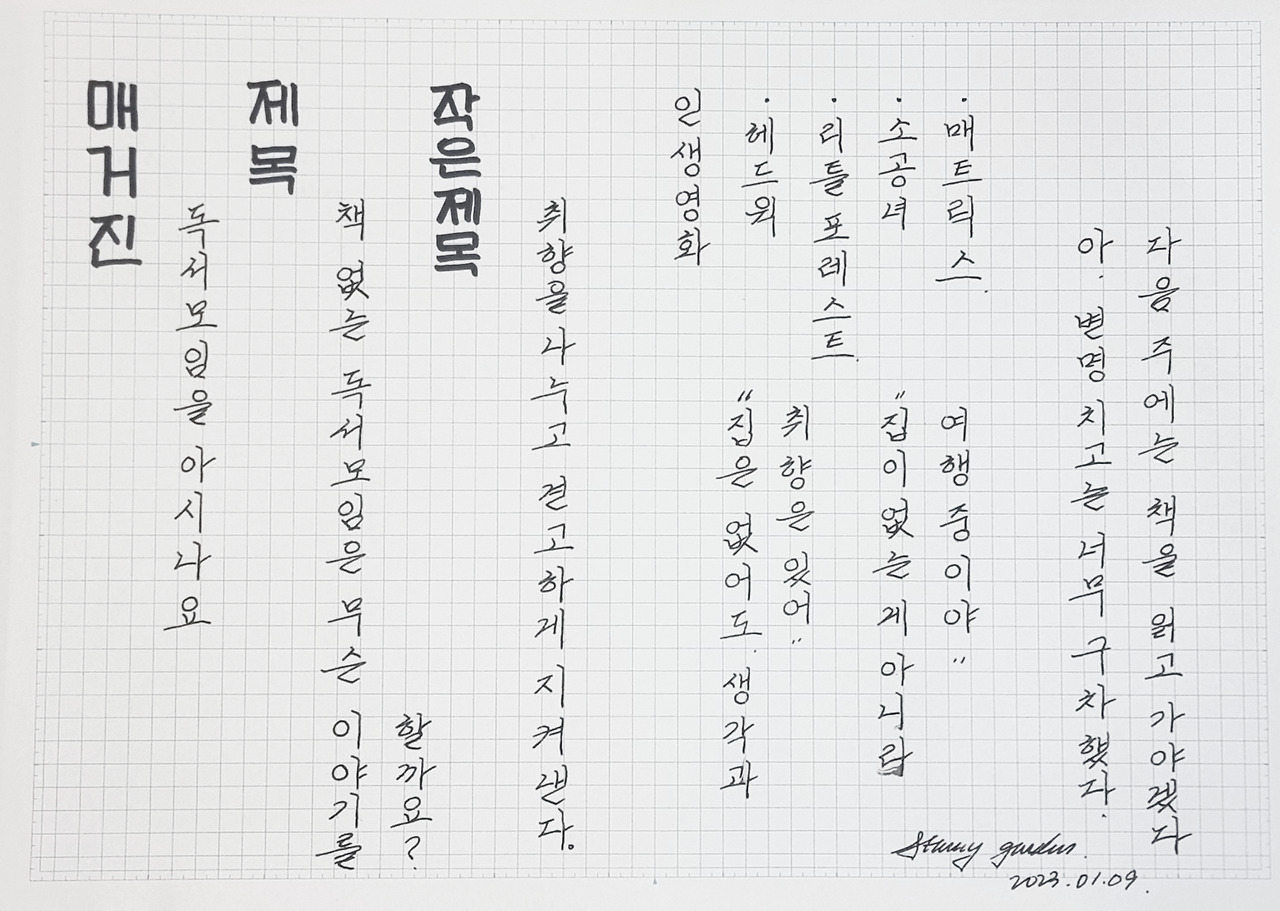 매거진
독서모임을 아시나요
제목
책 없는 독서모임은 무슨 이야기를
할까요?
작은제목
취향을 나누고 견고하게 지켜낸다.
인생영화
· 헤드윅
· 리틀 포레스트.
· 소공녀
· 매트릭스.
"집은 없어도 생각과
취향은 있어"
"집이 없는 게 아니라
여행중이야"
아. 변명 치고는 너무 구차했다.
다음 주에는 책을 읽고 가야겠다
Starry garden.
2023.01.09.